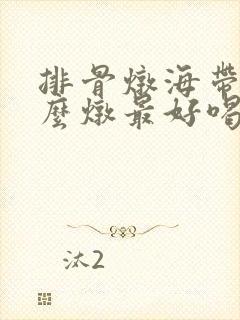 排骨燉海帶
麼燉最好喝
汰2